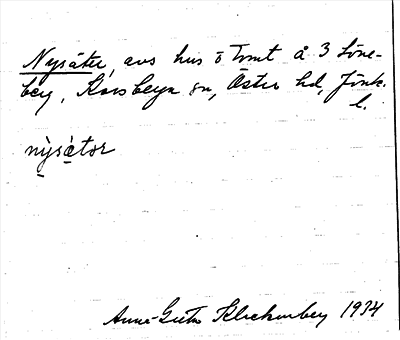 Nysäter, avs hus o tomt å 3 Löne-
berg, Korsberga sn, Östra hd, Jönk.
l.
nỳsạ̀tər
Anna-Greta Kleckenberg 1934